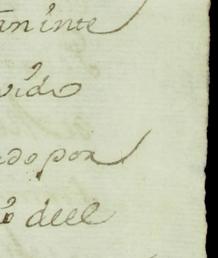 aninte
vido
ado por
deel